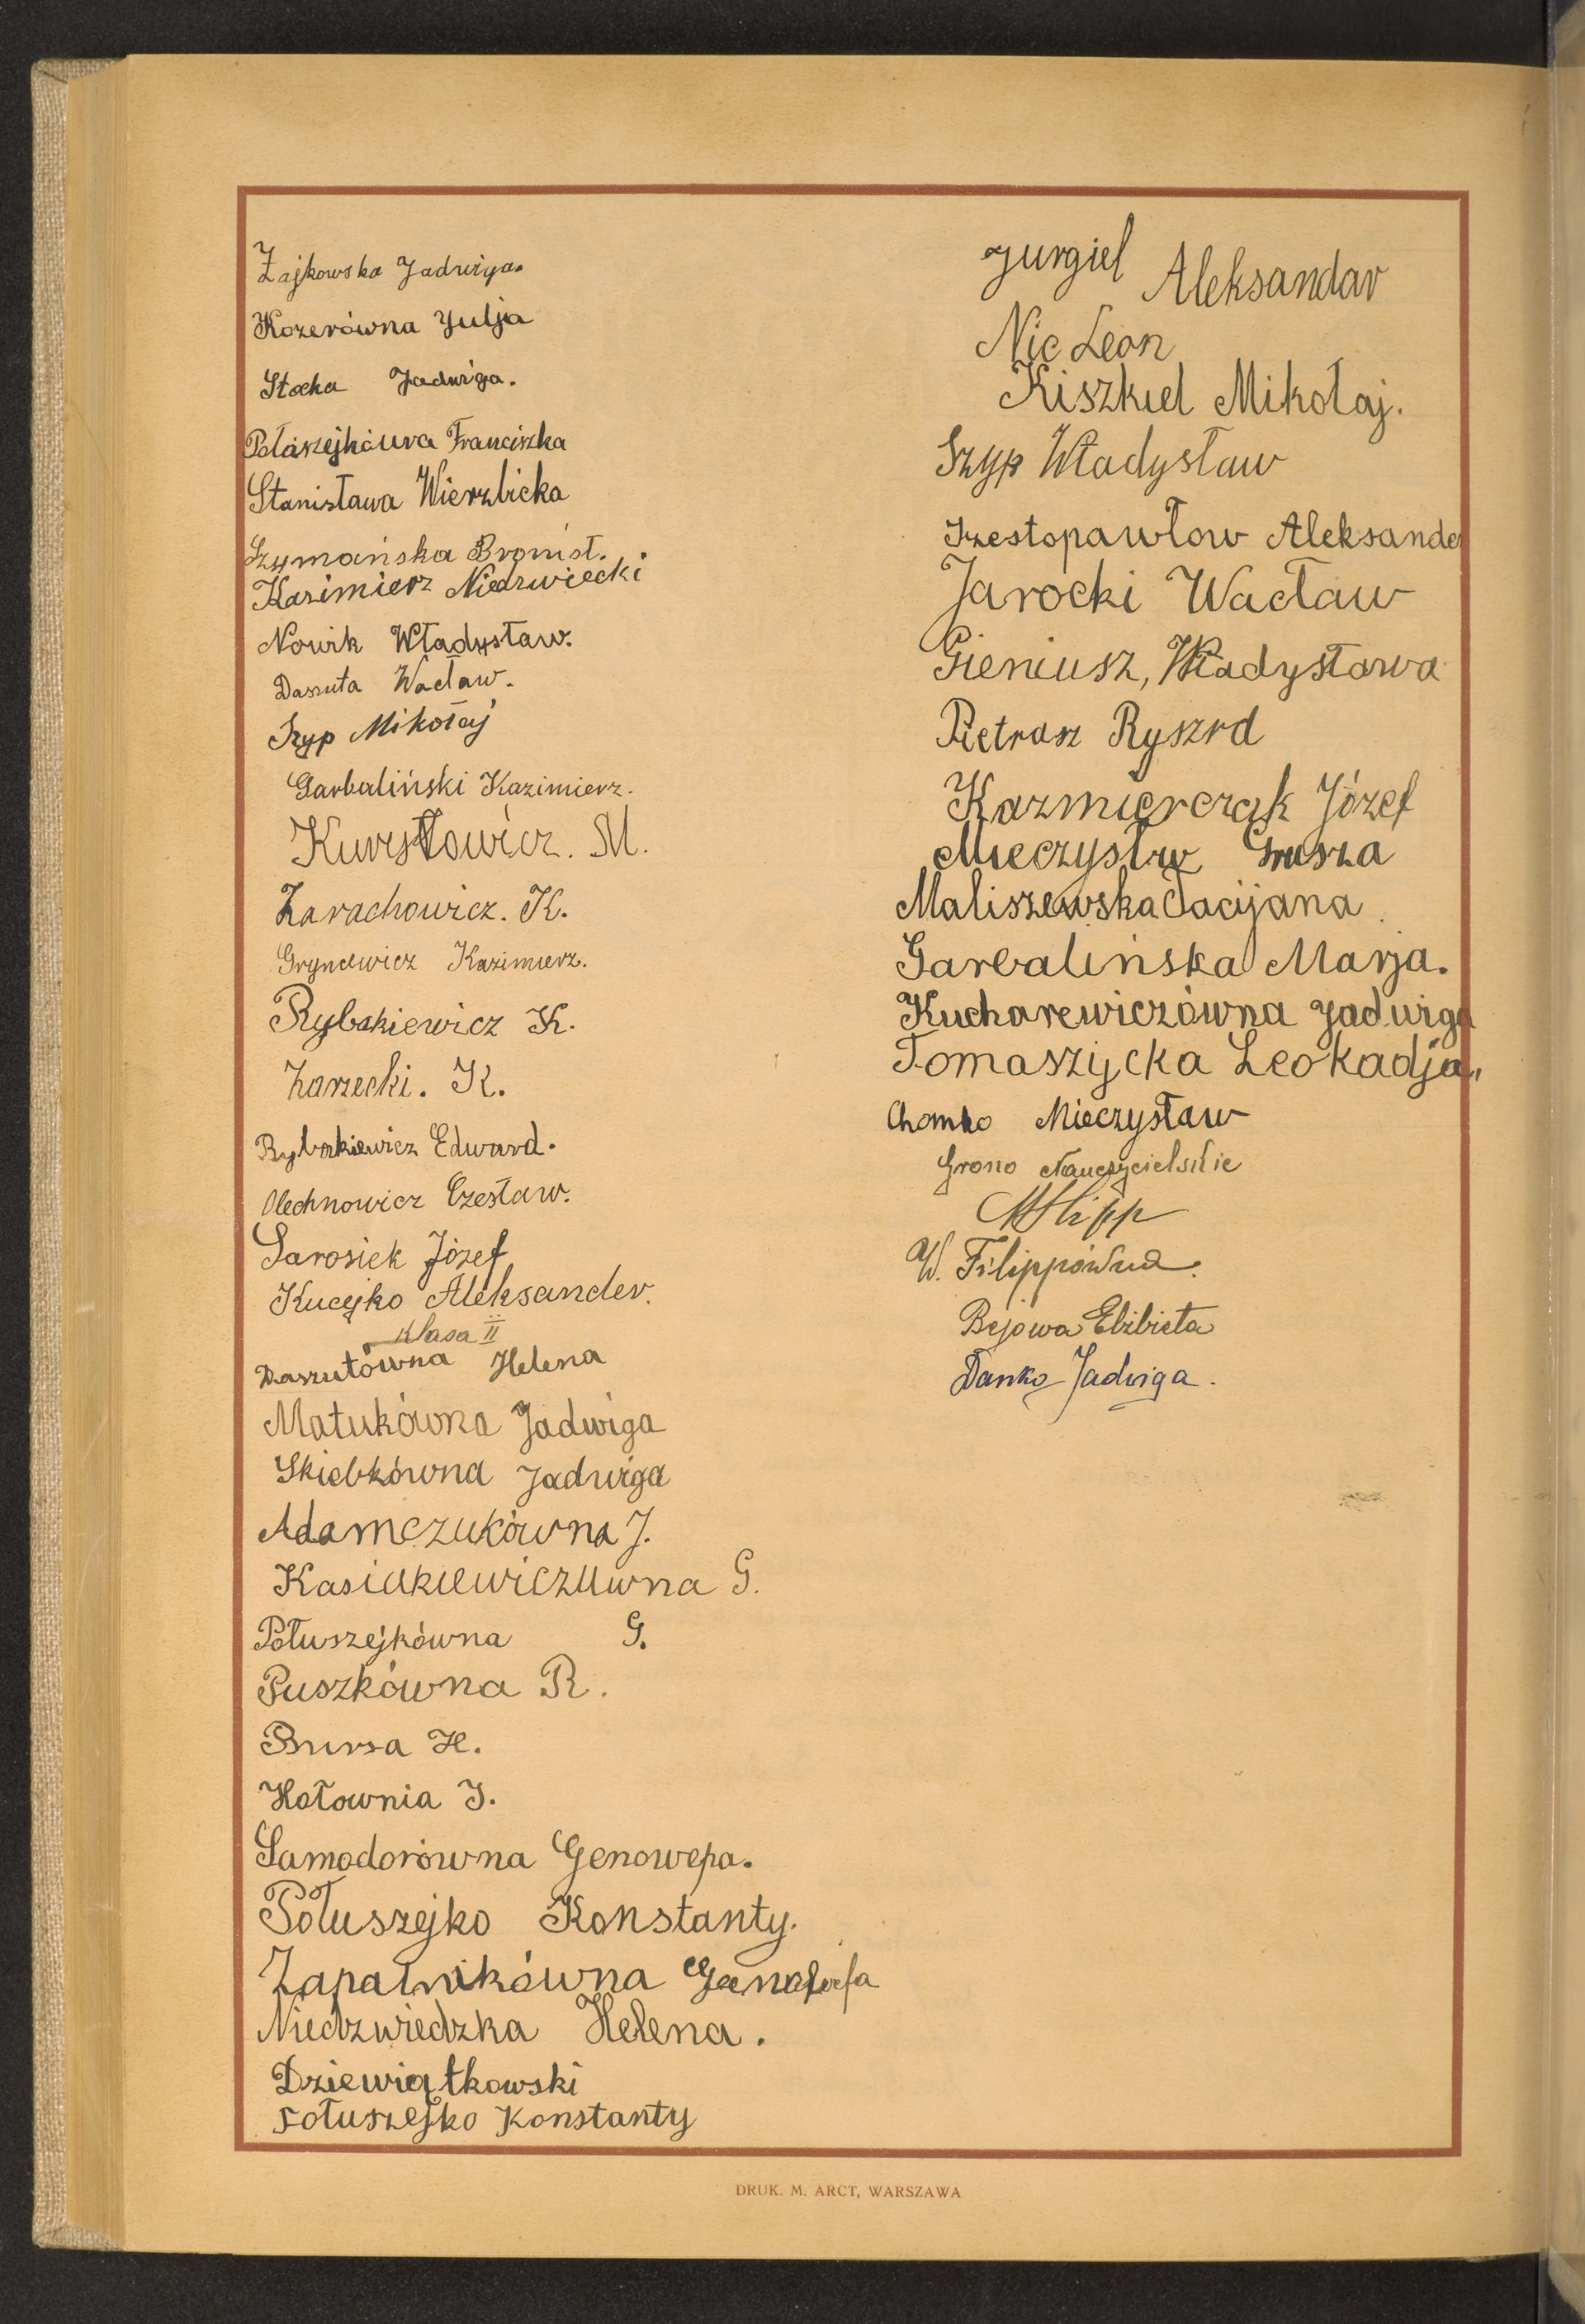 Zajkowska Jadwiga.
Kozerówna Julja
Stocka Jadwiga.
Franciszka
Stanisława Wierzbicka
Szymańska Bronisł.
Kazimierz Niedzwiecki
Nowik Władysław.
Daszuta Wacław.
Szyp Mikołaj
Garbaliński Kazimierz.
M.
Zarachowicz. K.
Gryncewicz Kazimierz.
Rybakiewicz K.
Zarzecki. K.
Rybakiewicz Edward.
Olechnowicz Czesław.
Sarosiek Józef
Kucejko Aleksander.
Klasa II
Daszutówna Helena
Matukówna Jadwiga
Skiebkówna Jadwiga
Adamczukówna J.
Kasiukiewiczuwna G.
Połuszejkówna G.
Puszkówna R.
Bursa H.
Hołownia J.
Samodorówna Genowepa.
Połuszejko Konstanty.
Zapałnikówna
Niedzwiedzka Helena.
Dziewiątkowski
Połuszejko Konstanty
Jurgiel Aleksandar
Nic Leon
Kiszkiel Mikołaj.
Szyp Władysław
Szestopawłow Aleksander
Jarocki Wacław
Gieniusz, Władysława
Pietrasz Ryszrd
Kazmierczak Józef
Mieczysłw Grusza
Maliszewska Tacijana
Garbalińska Marja.
Kucharewiczówna Jadwiga
Tomaszycka Leokadja,
Chomko Mieczysław
Grono Nauczycielskie
W. Filippówna.
Bejowa Elżbieta
Danko Jadwiga.
DRUK. M. ARCT, WARSZAWA